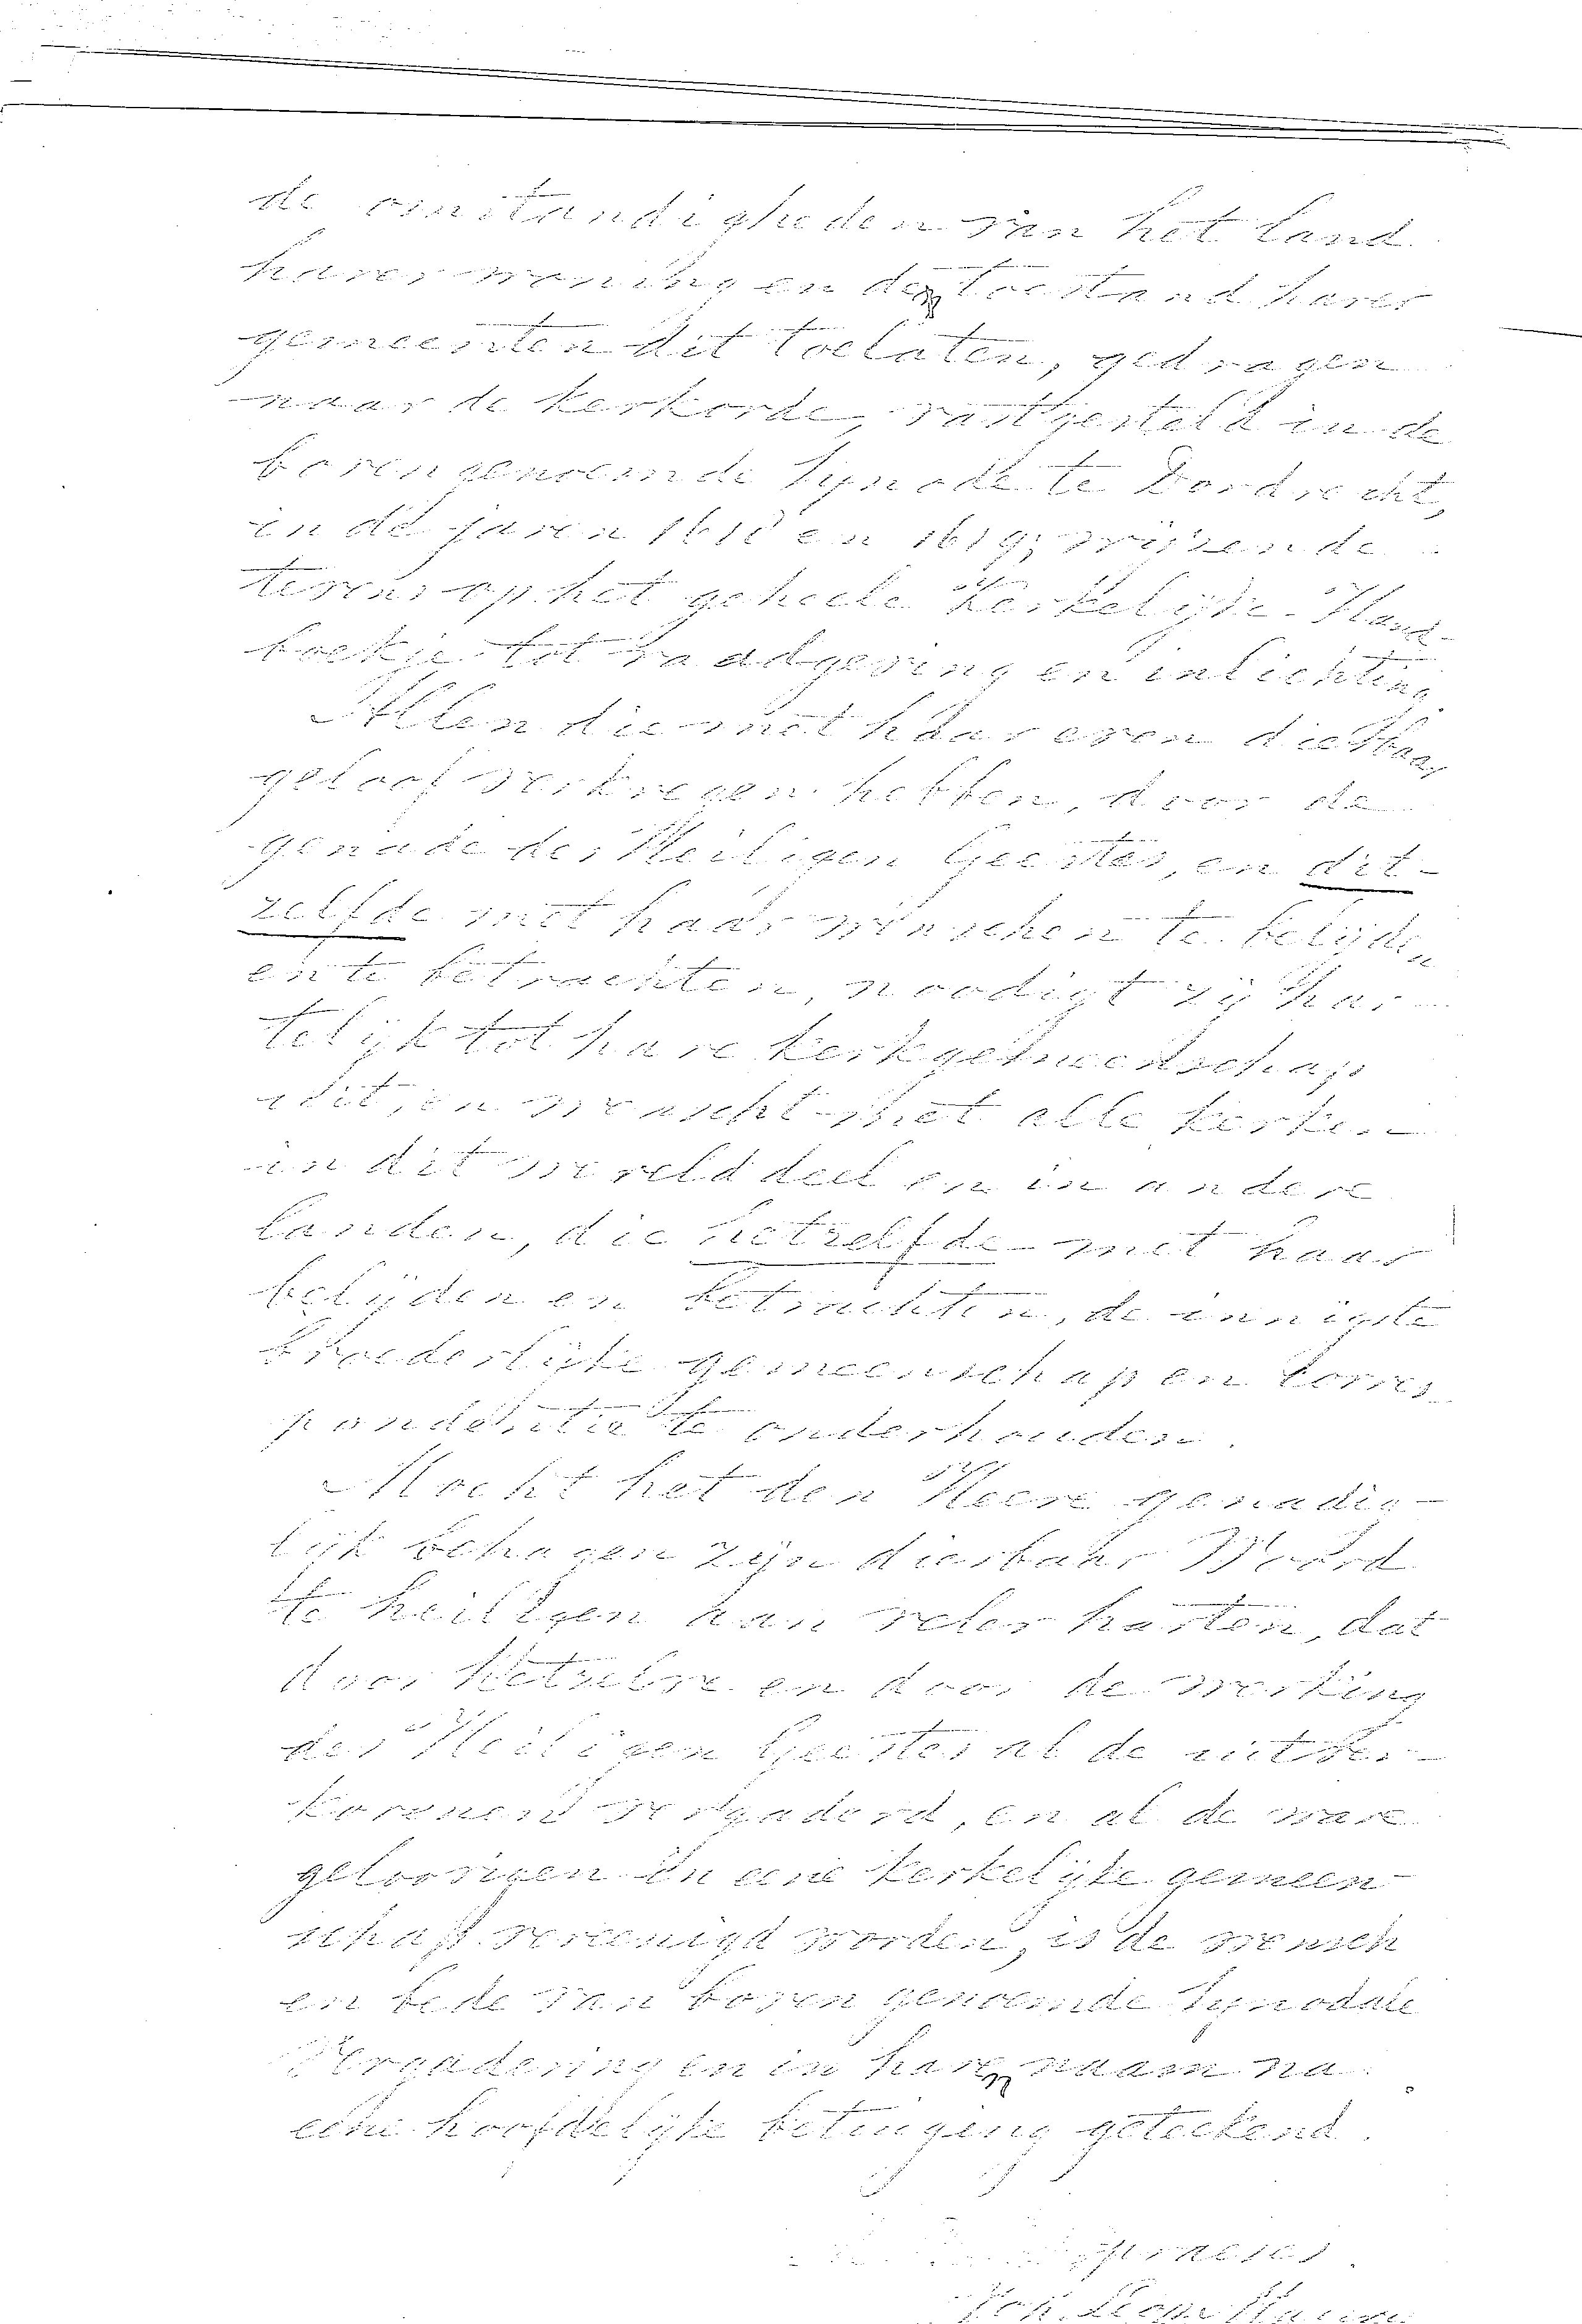 de omstandigheden van het Land
harer woning en de toestand harer
gemeenten dit toelaten, gedragen
naar de Kerkorde, vastgesteld in de
bovengenoemde Synode te Dordrecht,
in de jaren 1618 en 1619; wijzende
tevens op het geheele Kerkelijke Hand-
boekje tot raadgeving en inlichting.
Allen die met haar even dierbaar
geloof verkregen hebben, door de
genade des Heiligen Geestes, en dit-
zelfde met haar wenschen te belijden
en te betrachten, noodigt zij har-
telijk tot hare kerkgemeenschap
uit, en wenscht met alle kerken
in dit werelddeel en in andere
landen, die hetzelfde met haar
belijden en betrachten, de innigste
broederlijke gemeenschap en corres-
pondentie te onderhouden.
Mocht het den Heere genadig-
lijk behagen Zijn dierbaar Woord
te heiligen aan veler harten, dat
door hetzelve en door de werking
des Heiligen Geestes al de uitver-
korenen vergaderd, en al de ware
geloovigen in eene kerkelijke gemeen-
schap vereenigd worden, is de wensch
en bede van boven genoemde Synodale
Vergadering en in hare naam na
eene hoofdelijke betuiging geteekend.